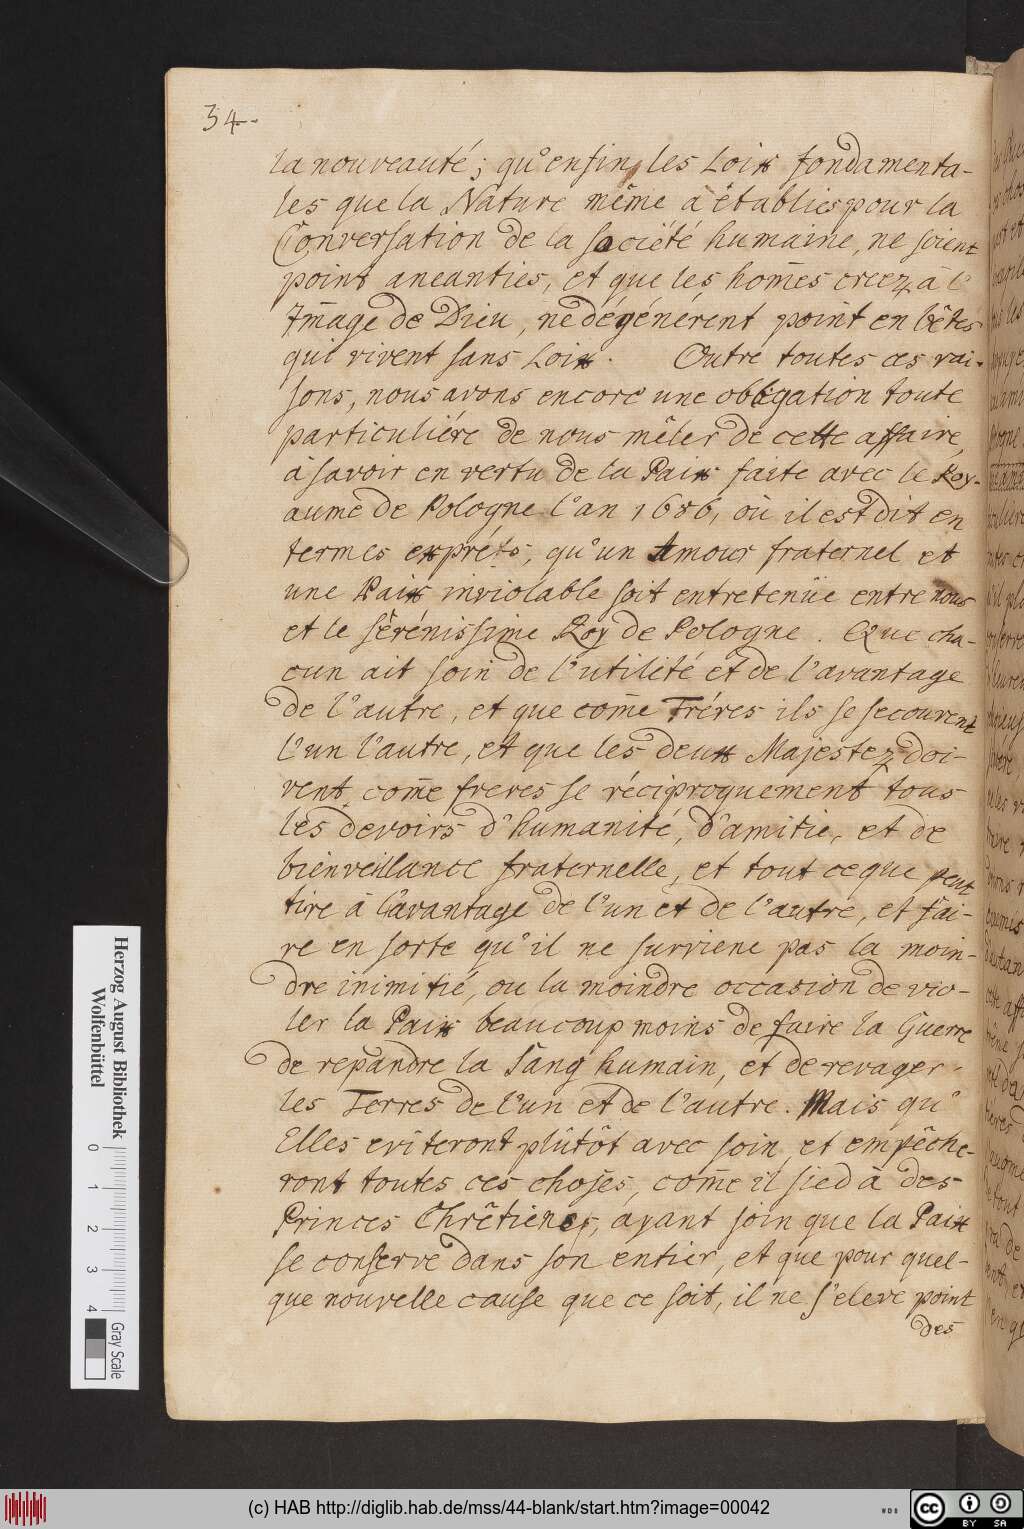 34.
la nouveauté; qu'enfin, les Loix fondamenta-
les que la Nature même a établies pour la
Conversation de la société humaine, ne soient
point aneanties, et que les hom̄es creez à l'
Im̄age de Dieu, ne dégénérent point en bêtes
qui vivent sans Loix. Outre toutes ces rai-
sons, nous avons encore une obligation toute
particuliére de nous mêler de cette affaire,
à savoir en vertu de la Paix faite avec le Roy-
aume de Pologne l'an 1686, où il est dit en
termes exprés, qu'un Amour fraternel et
une Paix inviolable soit entretenüe entre nous
et le sérénissime Roy de Pologne. Que cha-
cun ait soin de l'utilité et de l'avantage
de l'autre, et que com̄e Fréres ils se secourent
l'un l'autre, et que les deux Majestez doi-
vent com̄e freres se réciproquement tous
les devoirs d'humanité, d'amitie, et de
bienveillance fraternelle, et tout ce que peut
tire à l'avantage de l'un et de l'autre, et fai-
re en sorte qu'il ne surviene pas la moin-
dre inimitié, ou la moindre occasion de vio-
ler la Paix beaucoup moins de faire la Guerre
de repandre la Sang humain, et de revager
les Terres de l'un et de l'autre. Mais qu'
Elles eviteront plûtôt avec soin, et empêche-
ront toutes ces choses, com̄e il sied à des
Princes Chrêtiens, ayant soin que la Paix
se conserve dans son entier, et que pour quel-
que nouvelle cause que ce soit, il ne s'eleve point
des
Herzog August Bibliothek
Wolfenbüttel
0 1 2 3 4
Gray Scale
(c) HAB http://diglib.hab.de/mss/44-blank/start.htm?image=00042
WDB
cc BY SA